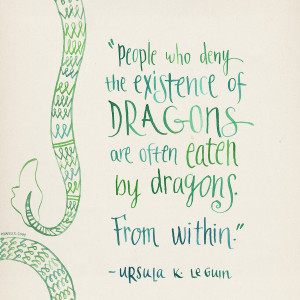 “People who deny
the existence of
DRAGONS
are often eaten
by dragons.
From within.”
– URSULA K. LE GUIN